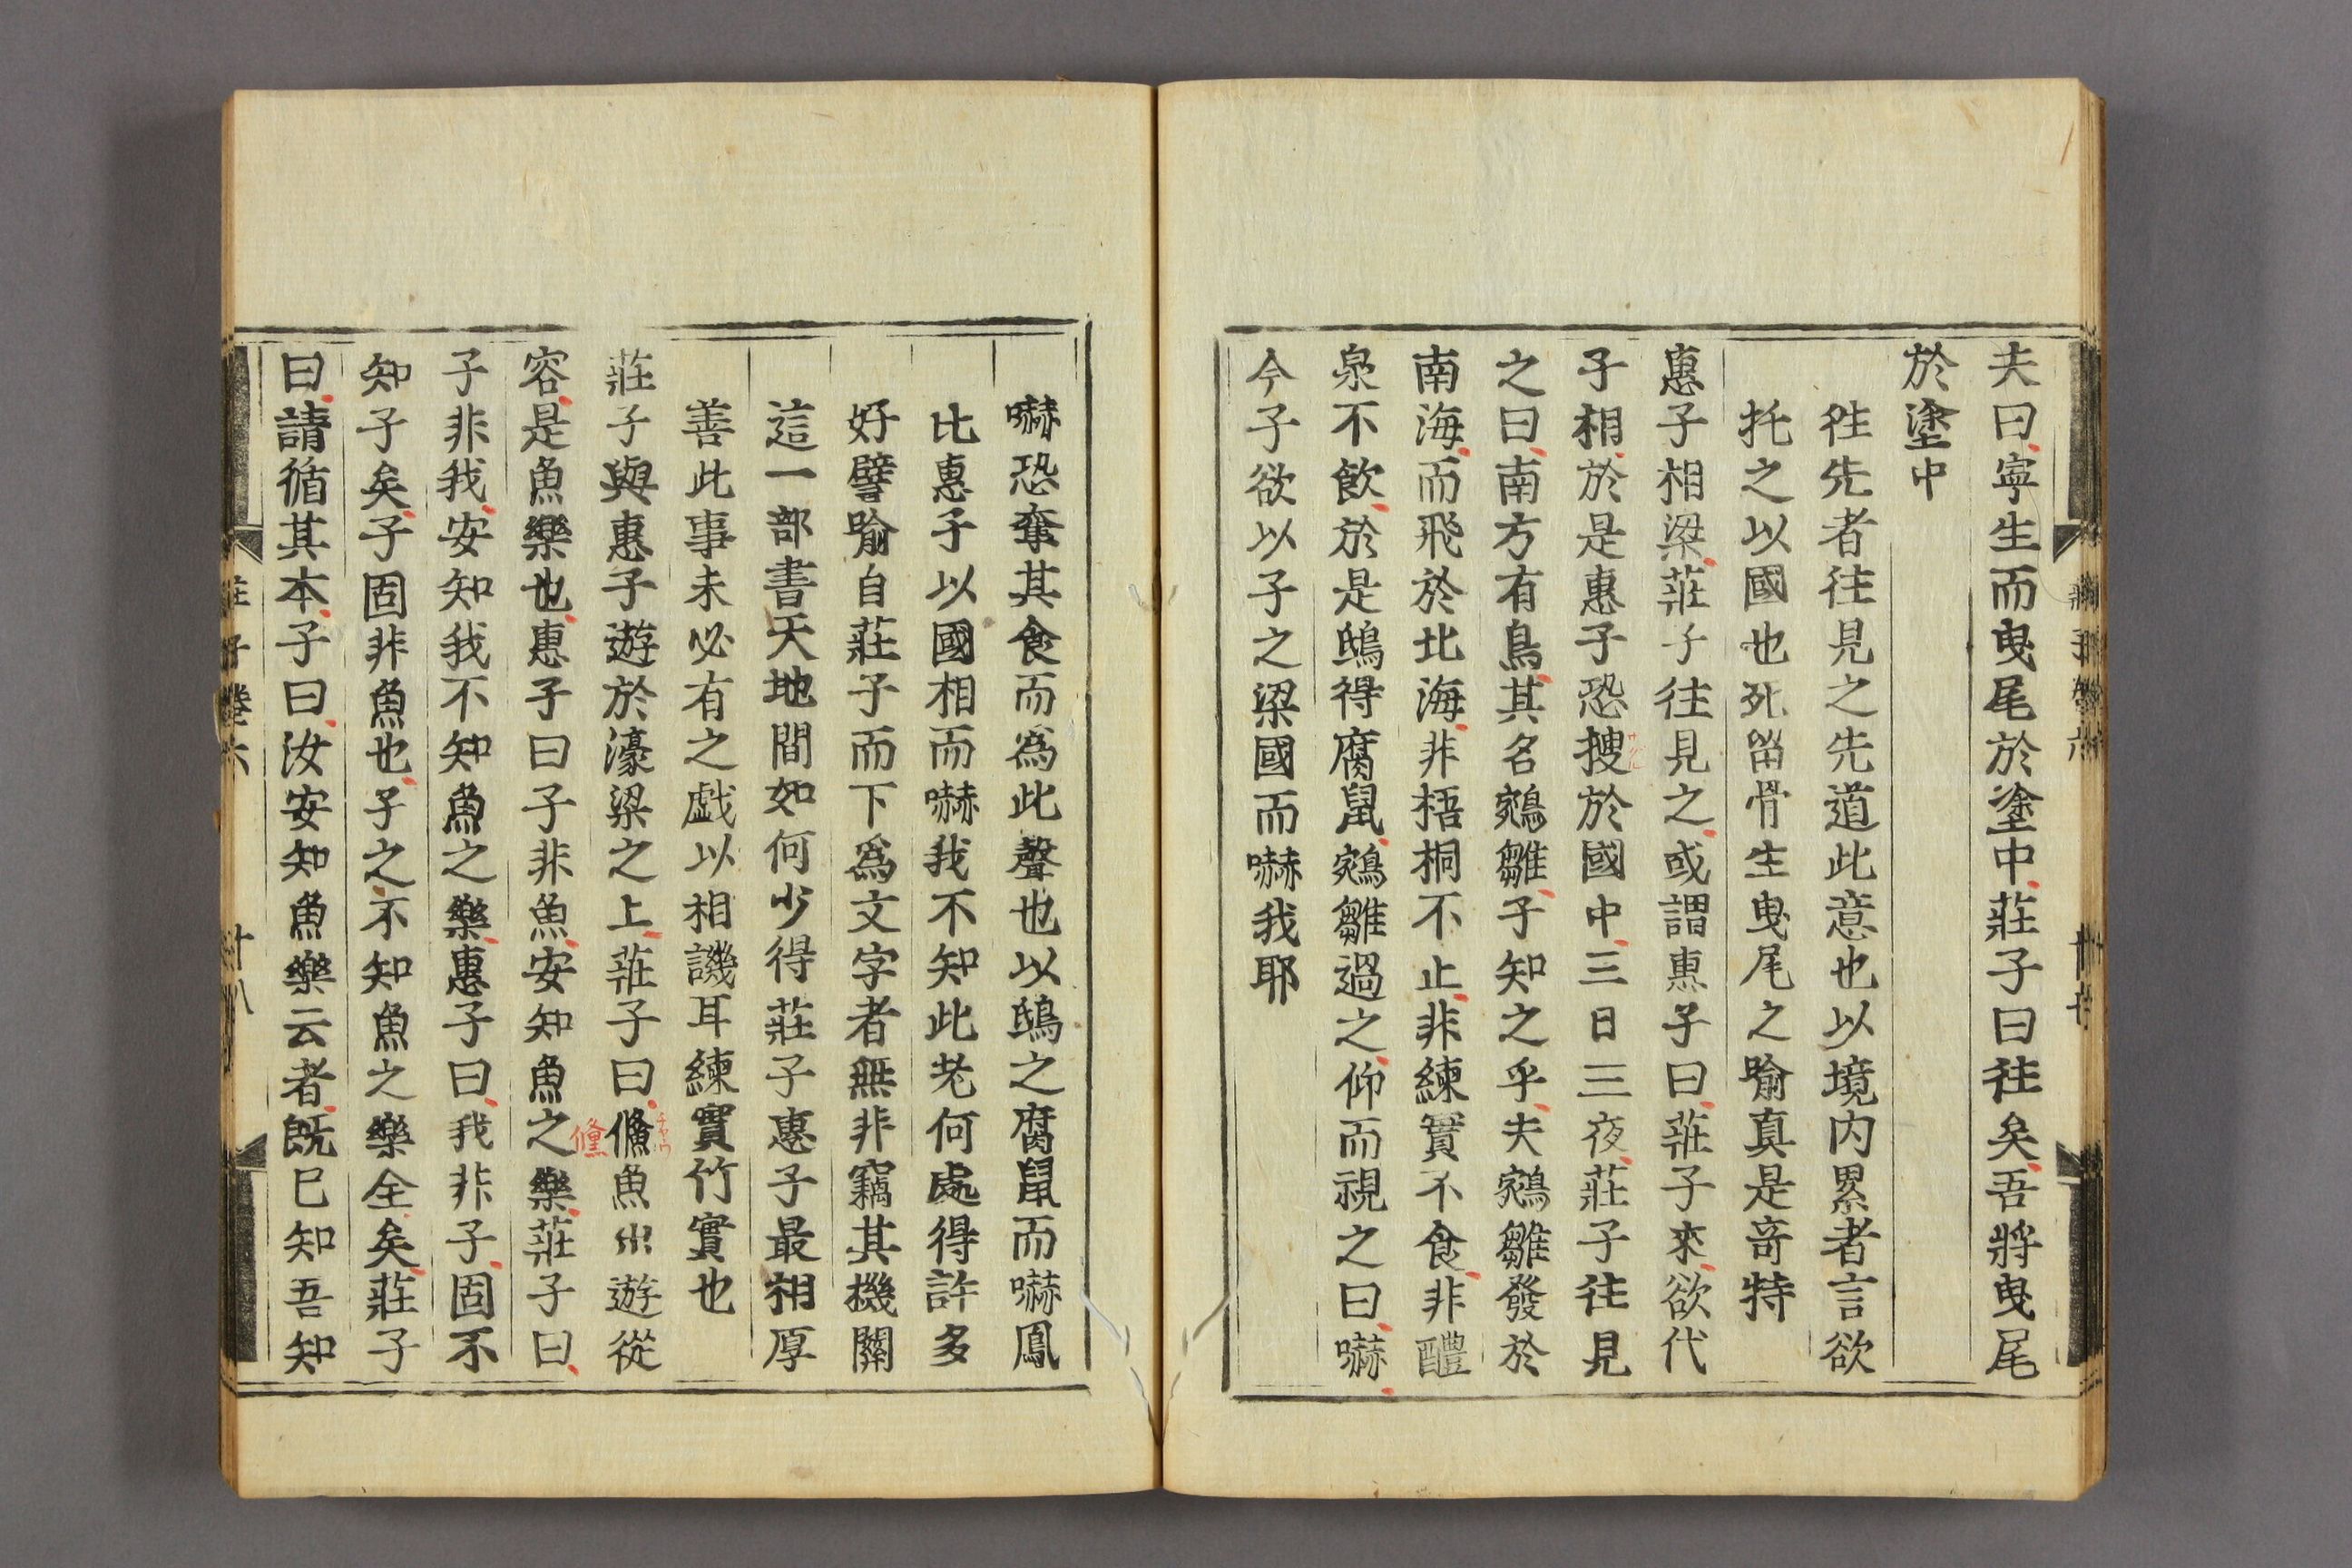 夫曰寧生而曳尾於塗中莊子曰往矣吾將曳尾
於塗中
徃先者往見之先道此意也以境内累者言欲
托之以國也死畱骨生曳尾之喻真是竒特
惠子相梁莊子往見之或謂惠子曰莊子來欲代
子相於是惠子恐搜於國中三日三夜莊子往見
之曰南方有鳥其名鵷雛子知之乎夫鵷雛發於
南海而飛於北海非梧桐不止非練實不食非醴
泉不飲於是鴟得腐鼠鵷雛過之仰而視之曰嚇
今子欲以子之梁國而嚇我耶
嚇恐奪其食而爲此聲也以鴟之腐鼠而嚇鳳
比惠子以國相而嚇我不知此老何處得許多
好譬喻自莊子而下爲文字者無非竊其機關
這一部書天地間如何少得莊子惠子最相厚
善此事未必有之戯以相譏耳練實竹實也
莊子與惠子遊於濠梁之上莊子曰鯈魚出遊從
儵
容是魚樂也惠子曰子非魚安知魚之樂莊子曰
子非我安知我不知魚之樂惠子曰我非子固不
知子矣子固非魚也子之不知魚之樂全矣莊子
曰請循其本子曰汝安知魚樂云者既已知吾知
莊子卷六
十八